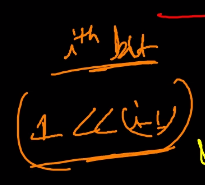 i^th bit
(1 << (i-1))